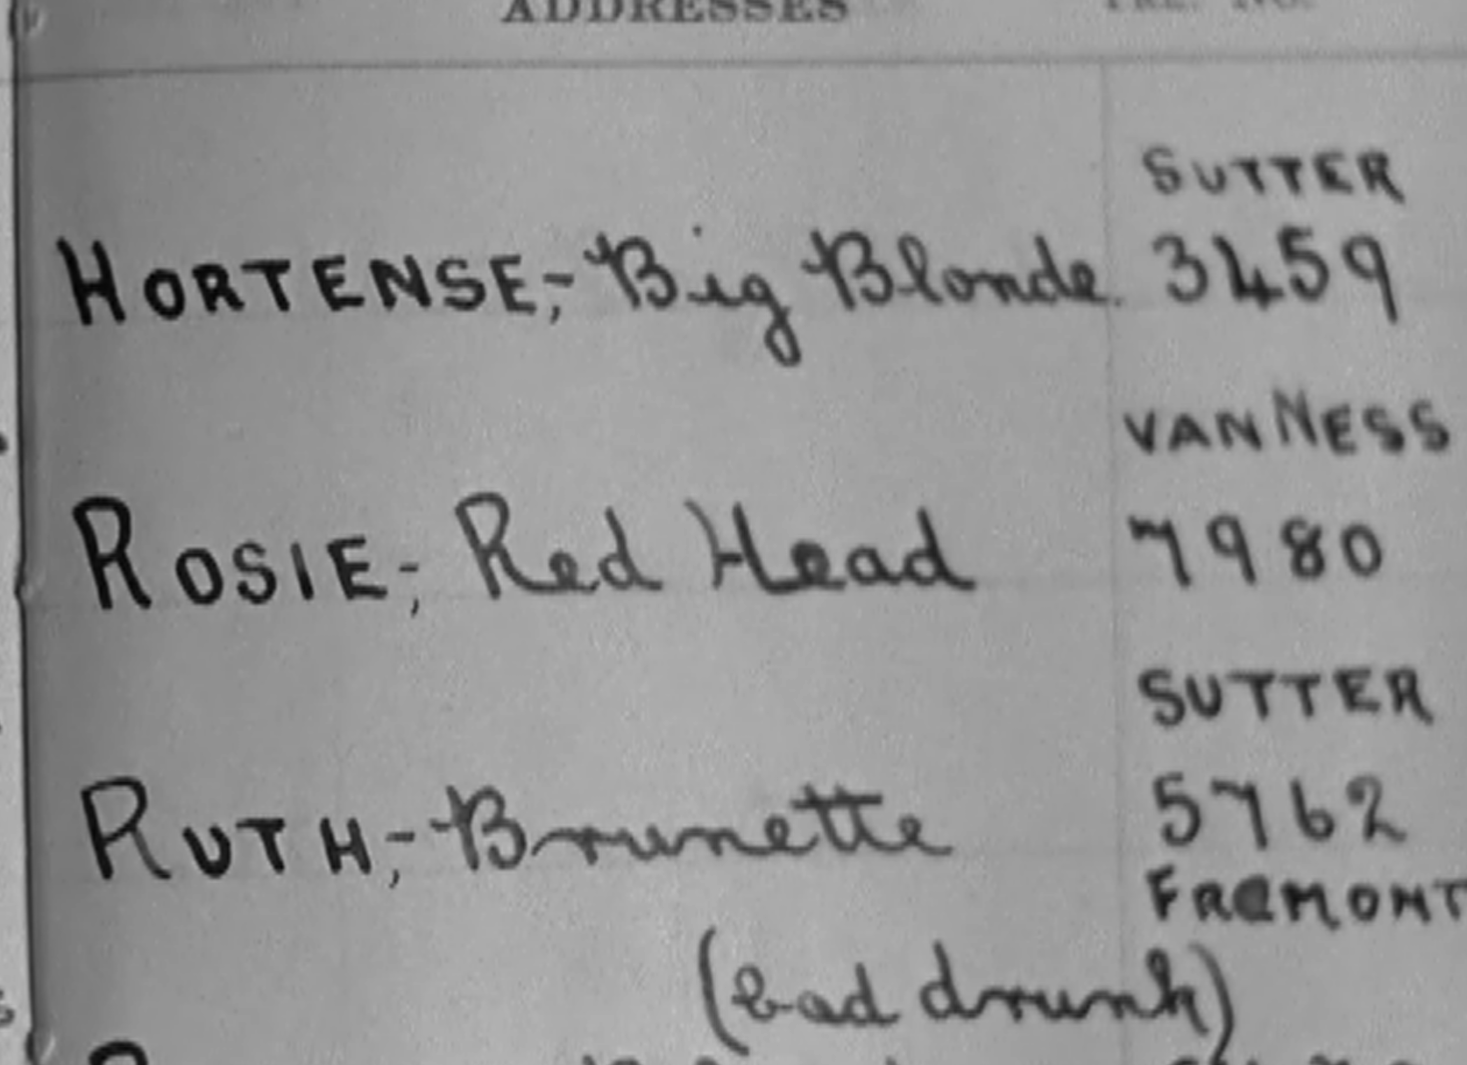 ADDRESSES TEL. NO.
SUTTER
HORTENSE;- Big Blonde. 3459
VAN NESS
ROSIE;- Red Head 7980
SUTTER
RUTH;- Brunette 5762
FREMONT
(bad drunk)